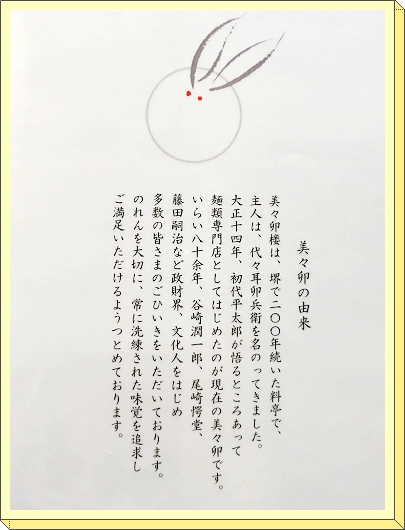 美々卯の由来
美々卯楼は、堺で二〇〇年続いた料亭で、
主人は、代々耳卯兵衛を名のってきました。
大正十四年、初代平太郎が悟るところあって
麺類専門店としてはじめたのが現在の美々卯です。
いらい八十余年、谷崎潤一郎、尾崎愕堂、
藤田嗣治など政財界、文化人をはじめ
多数の皆さまのごひいきをいただいております。
のれんを大切に、常に洗練された味覚を追求し
ご満足いただけるようつとめております。